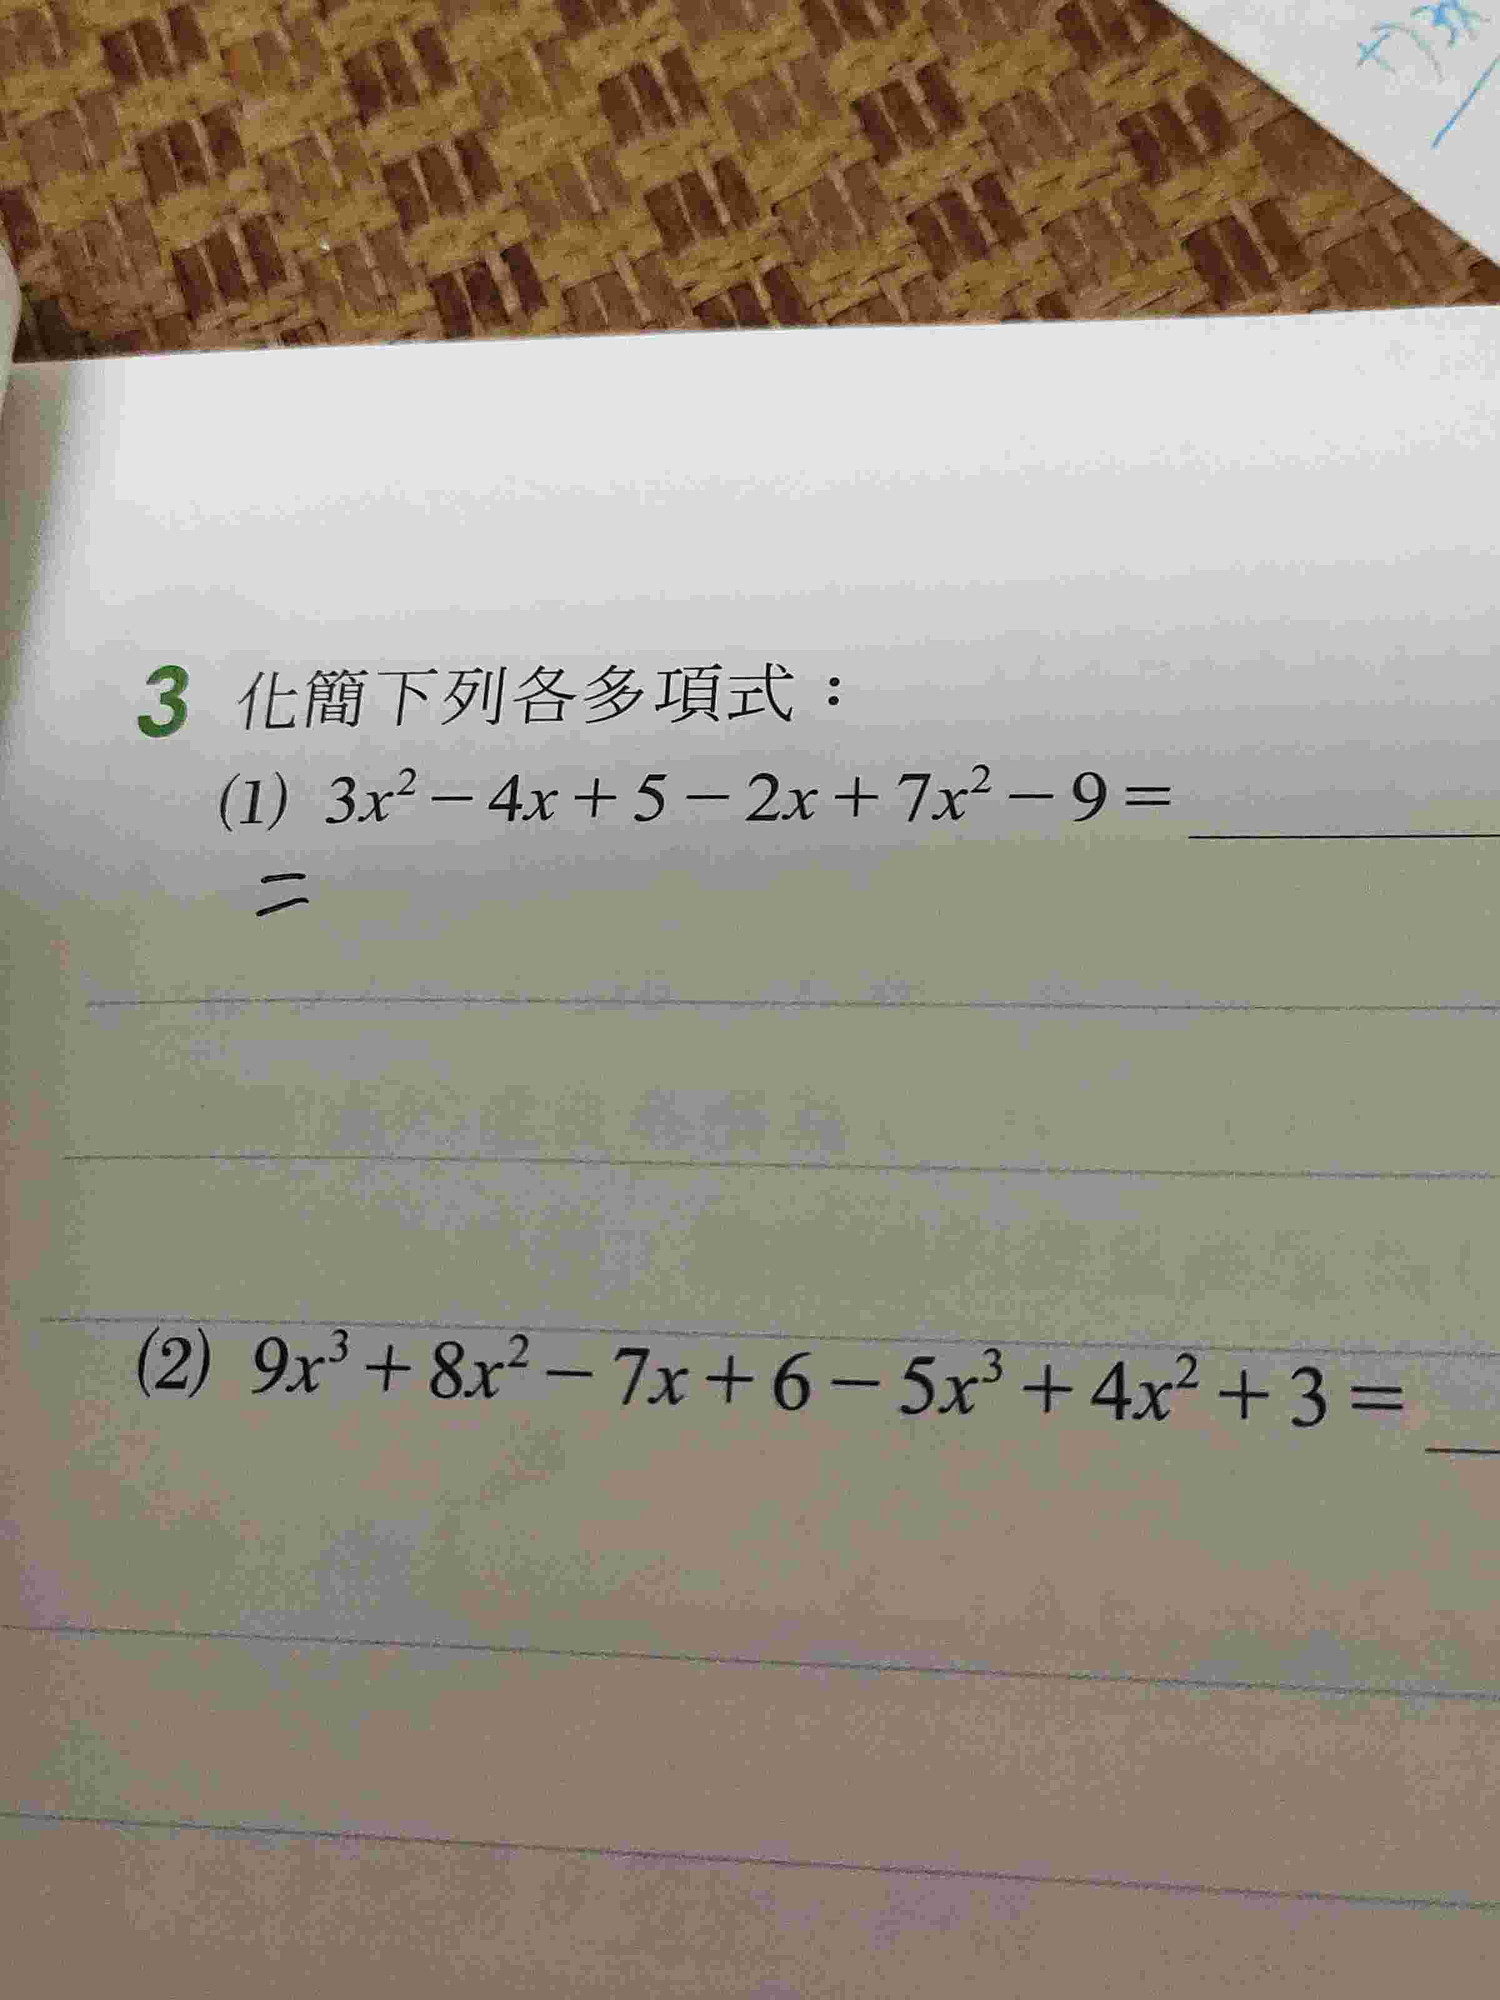 +)3x
3 化簡下列各多項式：
(1) 3x² − 4x + 5 − 2x + 7x² − 9 = ______
=
(2) 9x³ + 8x² − 7x + 6 − 5x³ + 4x² + 3 = __